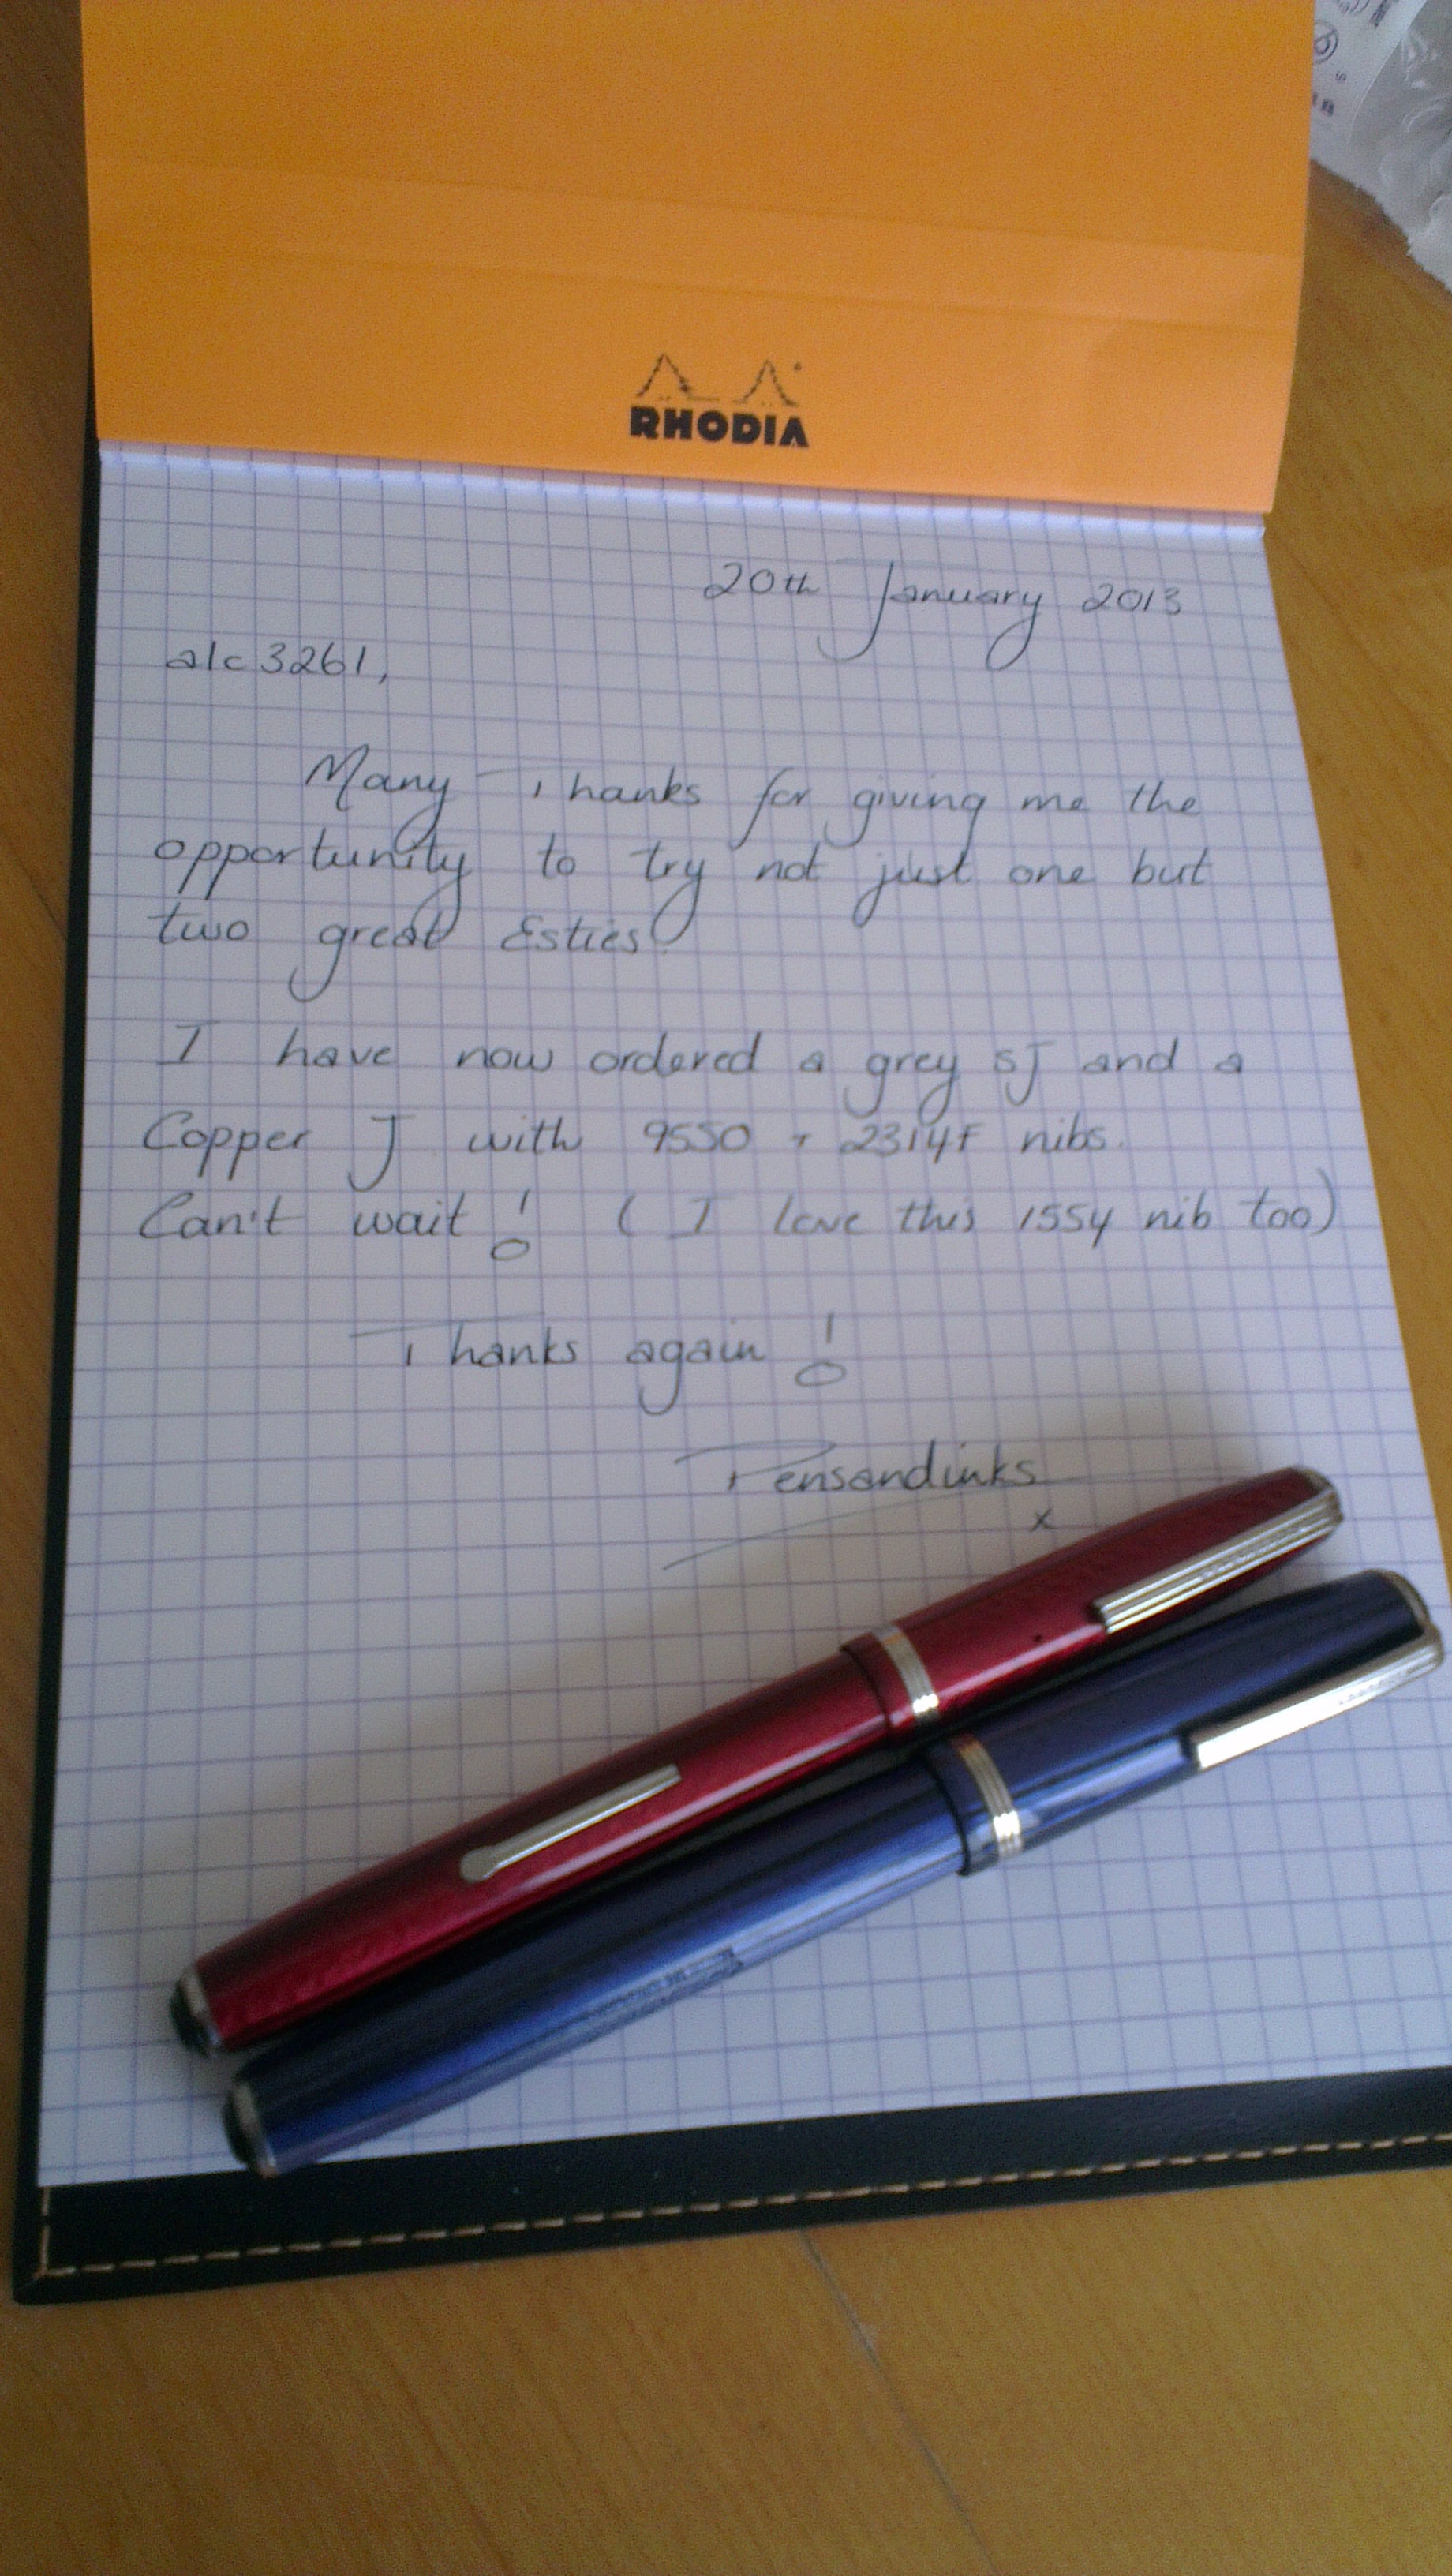 RHODIA
20th January 2013
alc3261,
Many Thanks for giving me the
opportunity to try not just one but
two great Esties!
I have now ordered a grey SJ and a
Copper J with 9550 + 2314F nibs.
Can't wait! (I love this 1554 nib too)
Thanks again!
Pensandinks
x